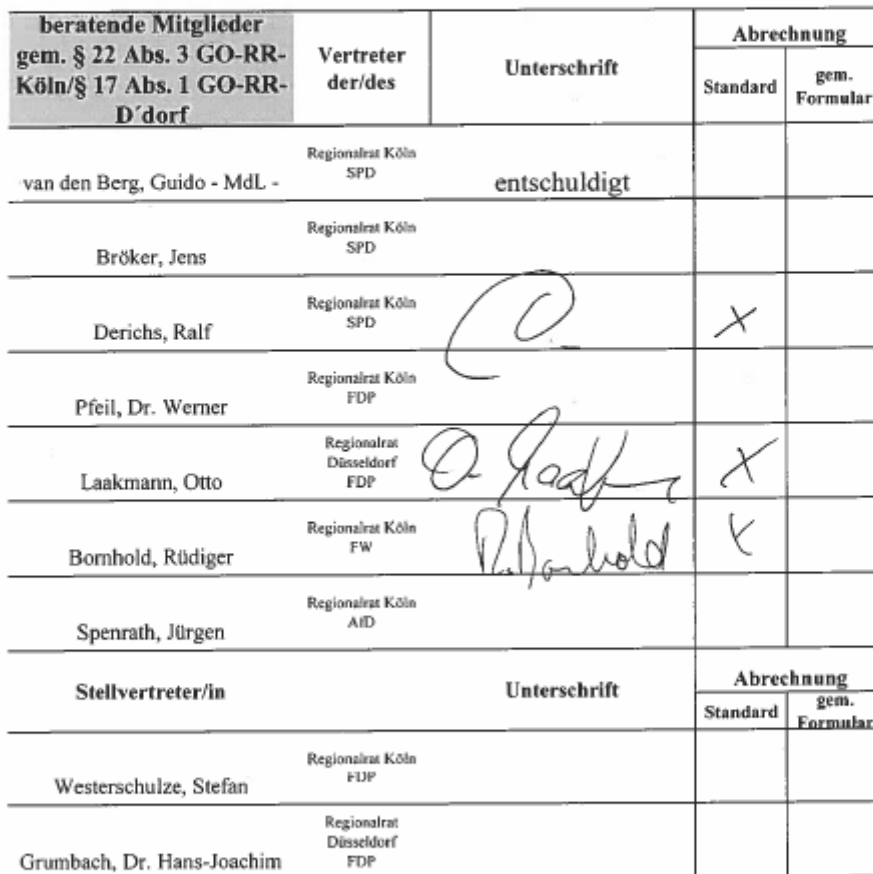 beratende Mitglieder
gem. § 22 Abs. 3 GO-RR-
Köln/§ 17 Abs. 1 GO-RR-
D´dorf
Vertreter
der/des
Unterschrift
Abrechnung
Standard
gem.
Formular
van den Berg, Guido - MdL -
Regionalrat Köln
SPD
entschuldigt
Bröker, Jens
Regionalrat Köln
SPD
Derichs, Ralf
Regionalrat Köln
SPD
X
Pfeil, Dr. Werner
Regionalrat Köln
FDP
Laakmann, Otto
Regionalrat
Düsseldorf
FDP
X
Bornhold, Rüdiger
Regionalrat Köln
FW
R. Bornhold
X
Spenrath, Jürgen
Regionalrat Köln
AfD
Stellvertreter/in
Unterschrift
Abrechnung
Standard
gem.
Formular
Westerschulze, Stefan
Regionalrat Köln
FDP
Grumbach, Dr. Hans-Joachim
Regionalrat
Düsseldorf
FDP